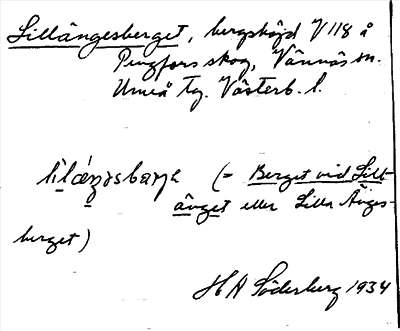 Lillängesberget, bergshöjd V 118 å
Pengfors skog, Vännäs sn.
Umeå tg. Västerb. l.
(= Berget vid Lill-
änget eller Lilla Änges-
berget)
H A Söderberg 1934